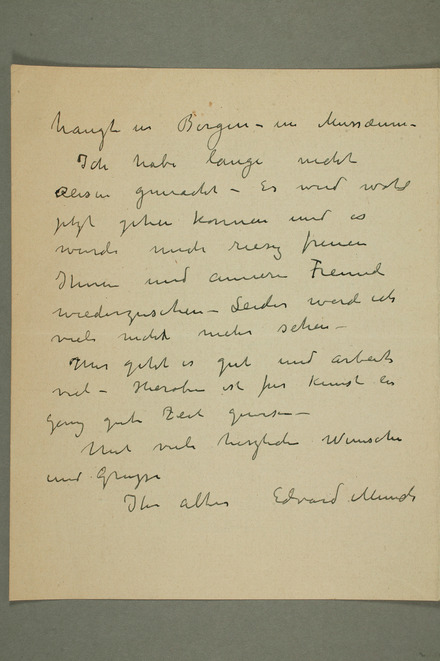 hangt in Bergen – im Musæum –
Ich habe lange nicht
Reisen gemacht – Es wird wohl
jetzt gehen können und es
würde mich riesig freuen
Ihnen und anderen Freunde
wiederzusehen – Leider werd ich
viele nicht mehr sehen –
Mir geht es gut und arbeite
viel – Hieroben ist für Kunst ein
ganz gute Zeit gewesen –
Mit viele herzliche Wünsche
und Grüsse
Ihr alter Edvard Munch